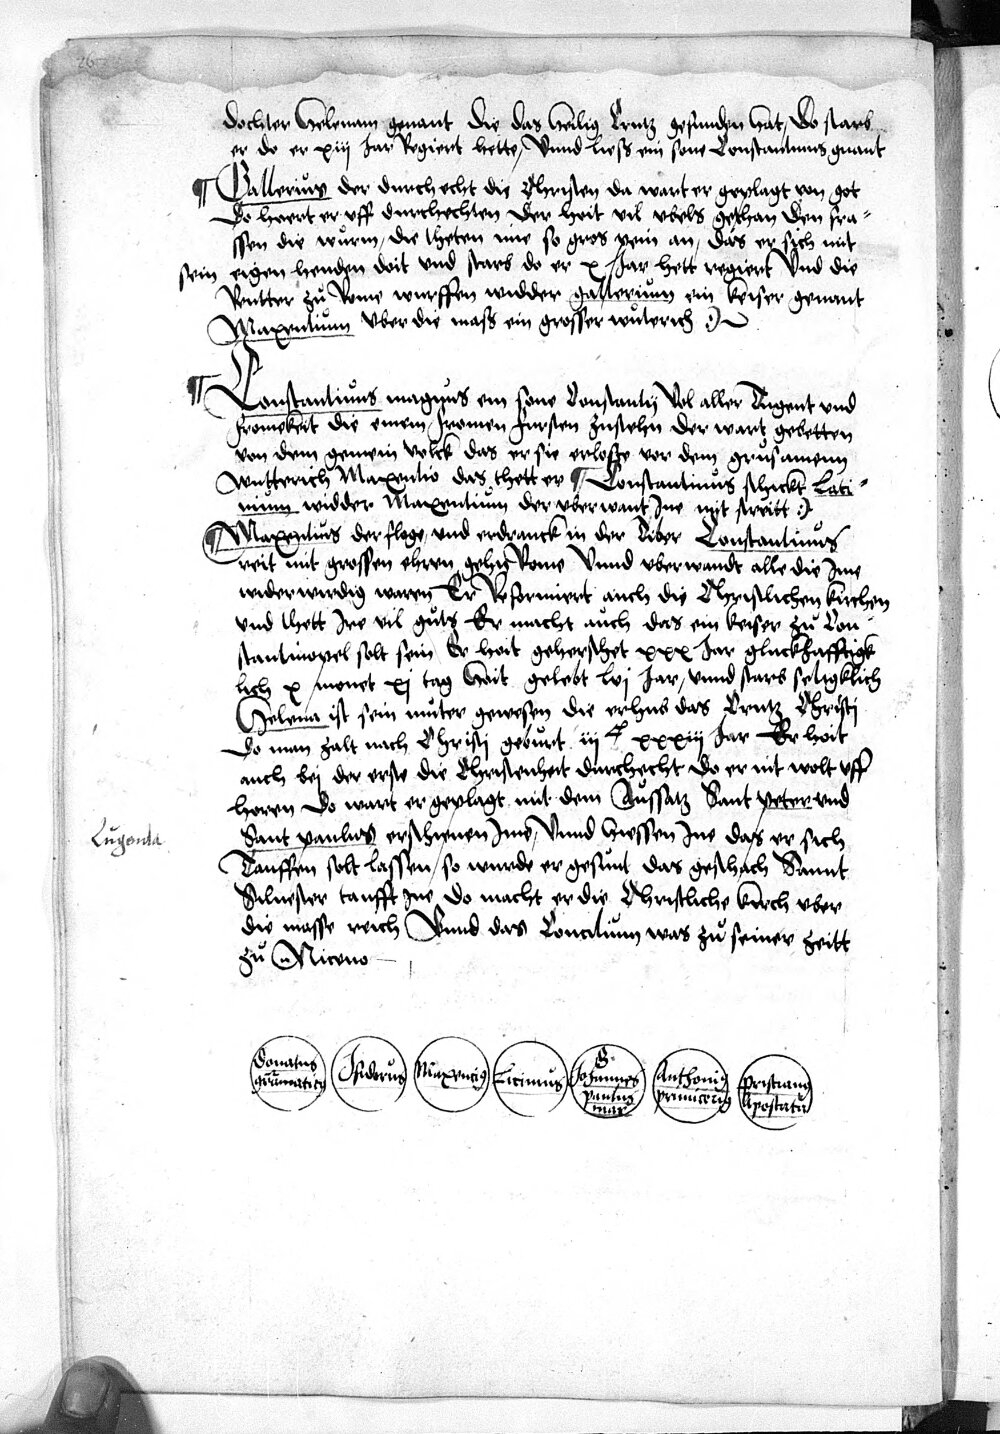 26
dochter Helenam genant die das heilig Crutz gefunden hat, Do starb
er do er xiij Jar Regiert hette, Vnnd liess ein sone Constantinus gnant
¶ Gallerius der durchecht die Christen da wart er geplagt von got
Do hoert er vff durchechten der hoit vil vbels gethan den fra=
ssen die wurm, die theten ime so gros pein an, das er sich mit
sein eigen henden doit vnd starb do er x Jar hett regiert Vnd die
Reutter zu Rome wurffen widder gallerium ein keiser genant
Maxentium vber die mass ein grosser wuterich :)
¶ Constantinus magnus ein sone Constantij Vol aller Tugent vnd
fromekeit die einem fromen fursten zustehn der wart gebetten
von dem gemein volck das er sie erlosse vor dem grusamenn
wutterich Maxentio das thett er ¶ Constantinus schickt Lati=
nium widder Maxentium der vberwant Ine mit streitt :)
¶ Maxentius der floge vnd erdranck in der Tiber Constantinus
reit mit grossen ehren gehn Rome Vnnd vberwandt alle die Ime
widerwirdig waren Er Reformiert auch die Christlichen kirchen
vnd thett Ire vil guts Er macht auch das ein keiser zu Con=
stantinopel solt sein Er hoit geherschet xxx Jar gluckhafftigk
lich x monet xj tag Hait gelebt lvj Jar, vnnd starb seligklich
Helena ist sein muter gewesen die erhub das Crutz Christi
Do man zalt nach Christi geburt iij C xxxiij Jar Er hoit
auch bej der erste die Christenheit durchecht Do er nit wolt vff
horen Do wart er geplagt mit dem Aussatz Sant peter vnd
Sant paulus erschienen Ime, Vnnd hiessen Ine das er sich
Tauffen solt lassen, so wurde er gesunt das geschach Sannt
Siluester taufft Ine Do macht er die Christliche kirch vber
die masse reich Vnnd das Concilium was zu seiner zeitt
zu Niceno
Donatus grammaticus
Isiderus
Maxencius
Licinius
S. Johannes paulus mar
Anthonius
Apostata